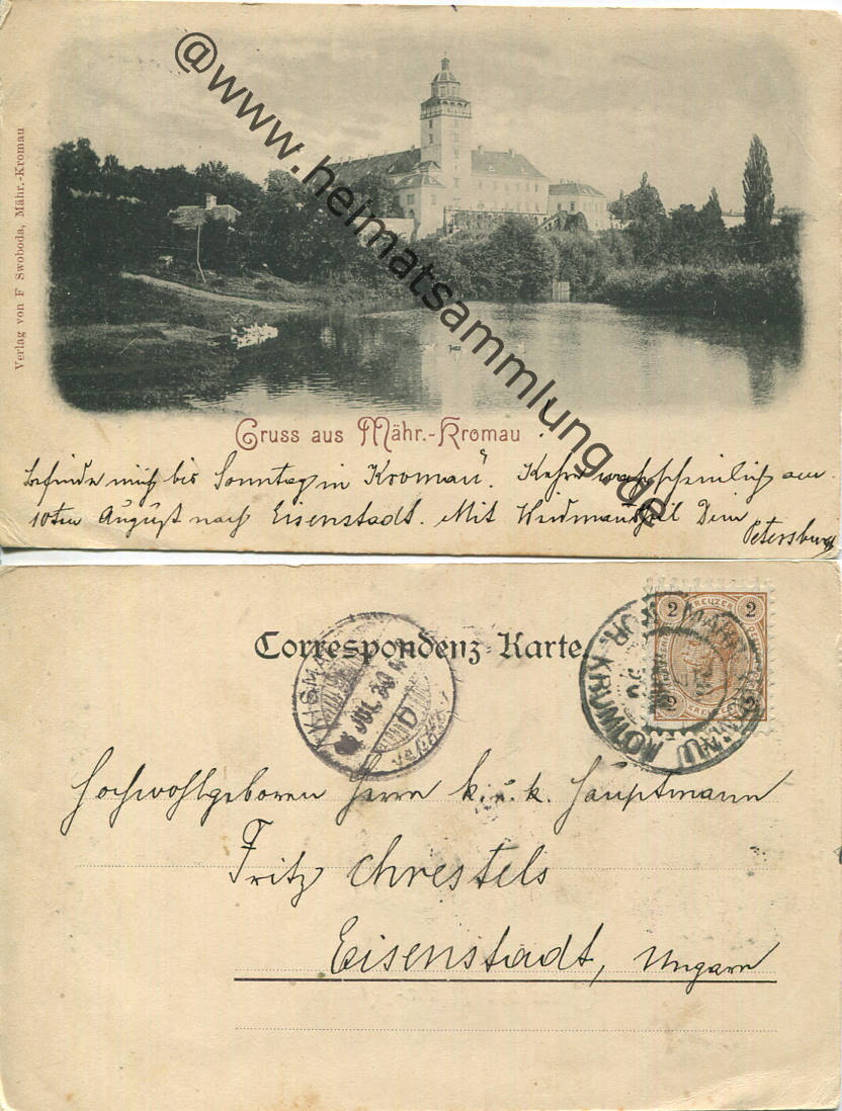 @www.heimatsammlung.de
Verlag von F Swoboda, Mähr.-Kromau
Gruss aus Mähr.-Kromau
Befinde mich bis Sonntag in Kromau". Kehre wahrscheinlich am
10ten August nach Eisenstadt. Mit Weidmannsheil Dein
Petersburg
Correspondenz-Karte.
KISMA
JUL. 30
D
KREUZER
2 2
2 2
MÄHR. KROMAU
MOR. KRUMLOV
Hochwohlgeboren Herrn k. u. k. Hauptmann
Fritz Chrestels
Eisenstadt, Ungarn